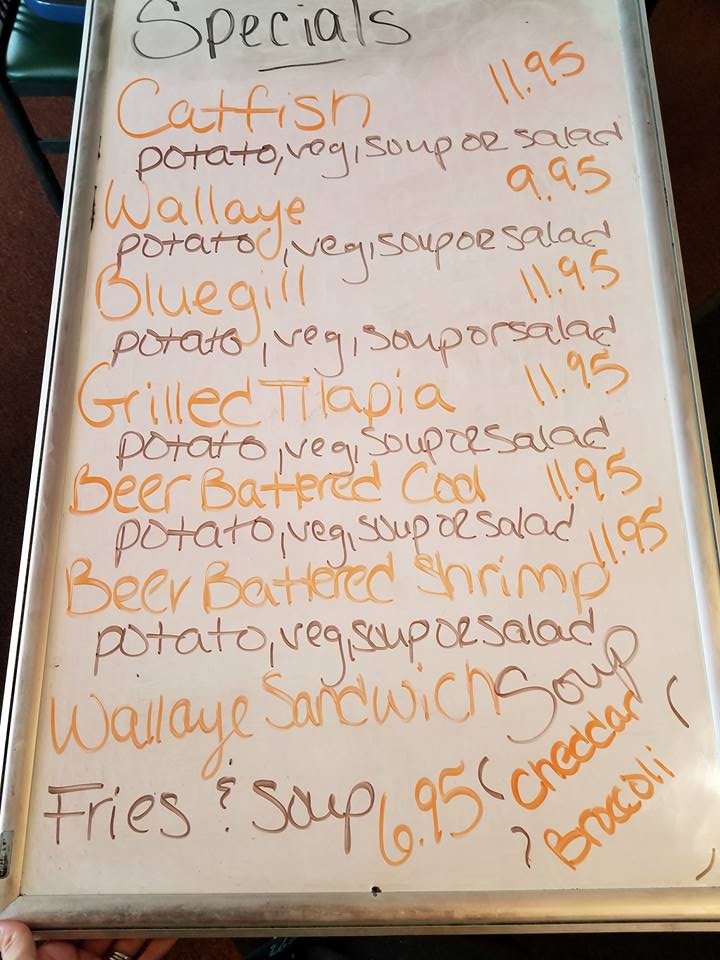 Specials
Catfish 11.95
potato, veg, soup or salad
Wallaye 9.95
potato, veg, soup or salad
Bluegill 11.95
potato, veg, soup or salad
Grilled Tilapia 11.95
potato, veg, soup or salad
Beer Battered Cod 11.95
potato, veg, soup or salad
Beer Battered Shrimp 11.95
potato, veg, soup or salad
Wallaye Sandwich
Fries & Soup 6.95
Soup
(Cheddar
Broccoli)